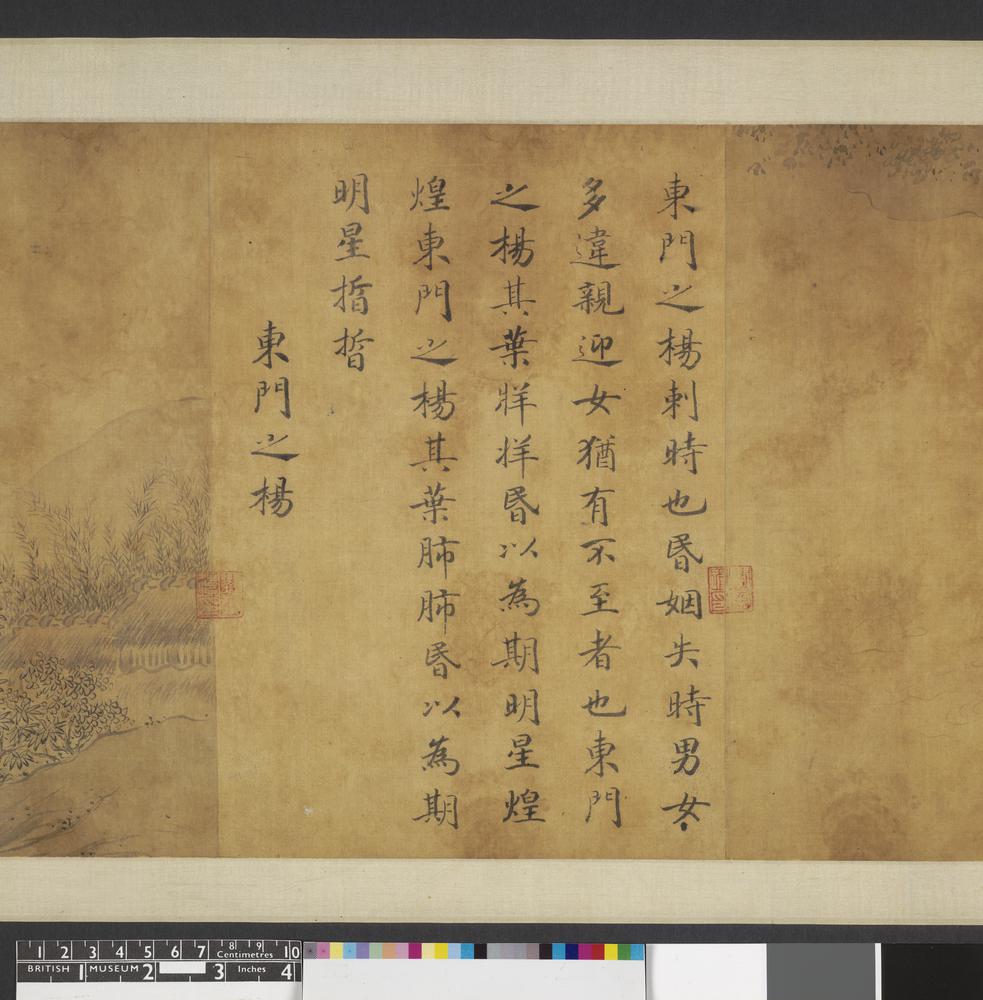 東門之楊刺時也昬姻失時男女
多違親迎女猶有不至者也東門
之楊其葉牂牂昬以為期明星煌
煌東門之楊其葉肺肺昬以為期
明星晢晢
東門之楊
1 2 3 4 5 6 7 8 9 10
Centimetres
BRITISH MUSEUM
1 2 3 Inches 4